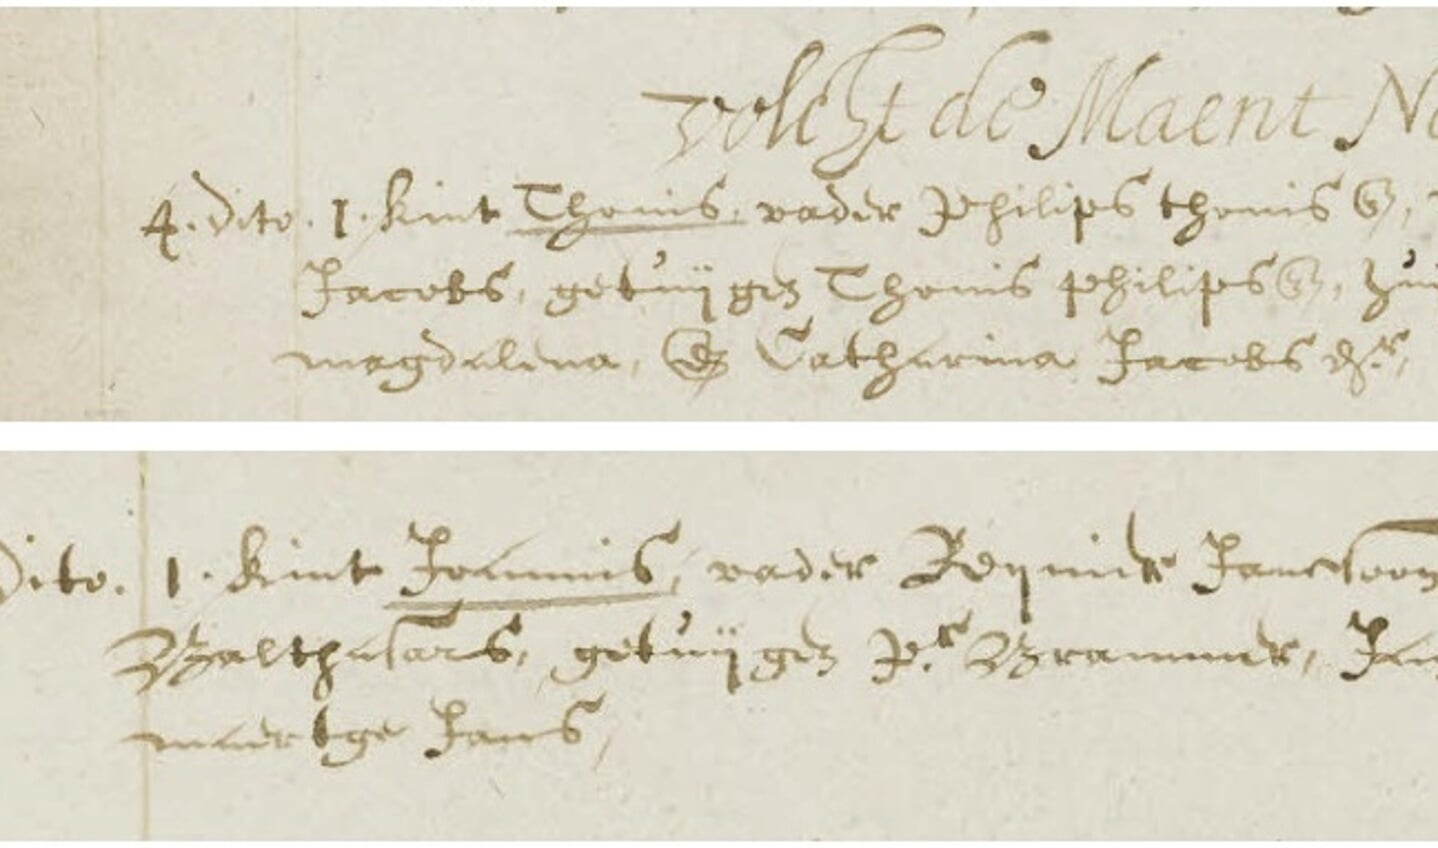 volcht de Maent No
4. dito. 1. kint Thonis, vader Philips thonis
Jacobs, getuijgen Thonis philips
magdalena, & Catharina Jacobs dr,
Dito. 1. kint Joannis, vader Reijnier Janssoon
Balthasars, getuijgen Pr Brammer,
maertge Jans,